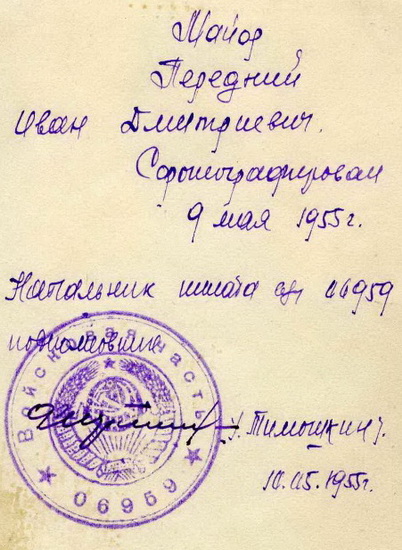 Майор
Передний
Иван Дмитриевич.
Сфотографирован
9 мая 1955 г.
Начальник штаба 06959
подполковник
Войсковая часть
06959
Тимошкин
10.05.1955г.